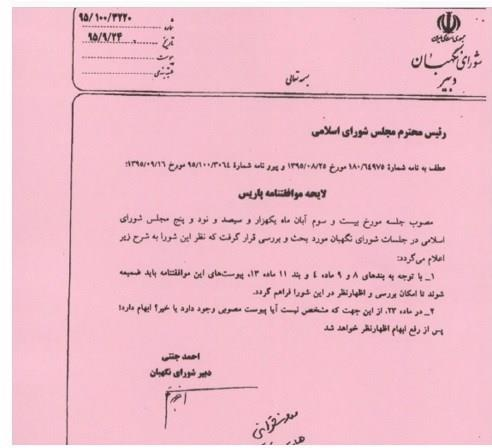 شماره ۹۵/۱۰۰/۳۲۲۰
تاریخ ۹۵/۹/۲۴
پیوست
جمهوری اسلامی ایران
شورای نگهبان
دبیر
بسمه تعالی
رئیس محترم مجلس شورای اسلامی
عطف به نامه شمارۀ ۱۸۰/۶۴۹۷۵ مورخ ۱۳۹۵/۰۸/۲۵ و پیرو نامه شمارۀ ۹۵/۱۰۰/۳۰۶۴ مورخ ۱۳۹۵/۰۹/۱۶؛
لایحه موافقتنامه پاریس
مصوب جلسه مورخ بیست و سوم آبان ماه یکهزار و سیصد و نود و پنج مجلس شورای
اسلامی در جلسات شورای نگهبان مورد بحث و بررسی قرار گرفت که نظر این شورا به شرح زیر
اعلام می‌گردد:
۱_ با توجه به بندهای ۸ و ۹ ماده ۴ و بند ۱۱ ماده ۱۳، پیوست‌های این موافقتنامه باید ضمیمه
شوند تا امکان بررسی و اظهارنظر در این شورا فراهم گردد.
۲_ در ماده ۲۳، از این جهت که مشخص نیست آیا پیوست مصوبی وجود دارد یا خیر؟ ابهام دارد؛
پس از رفع ابهام اظهارنظر خواهد شد
احمد جنتی
دبیر شورای نگهبان